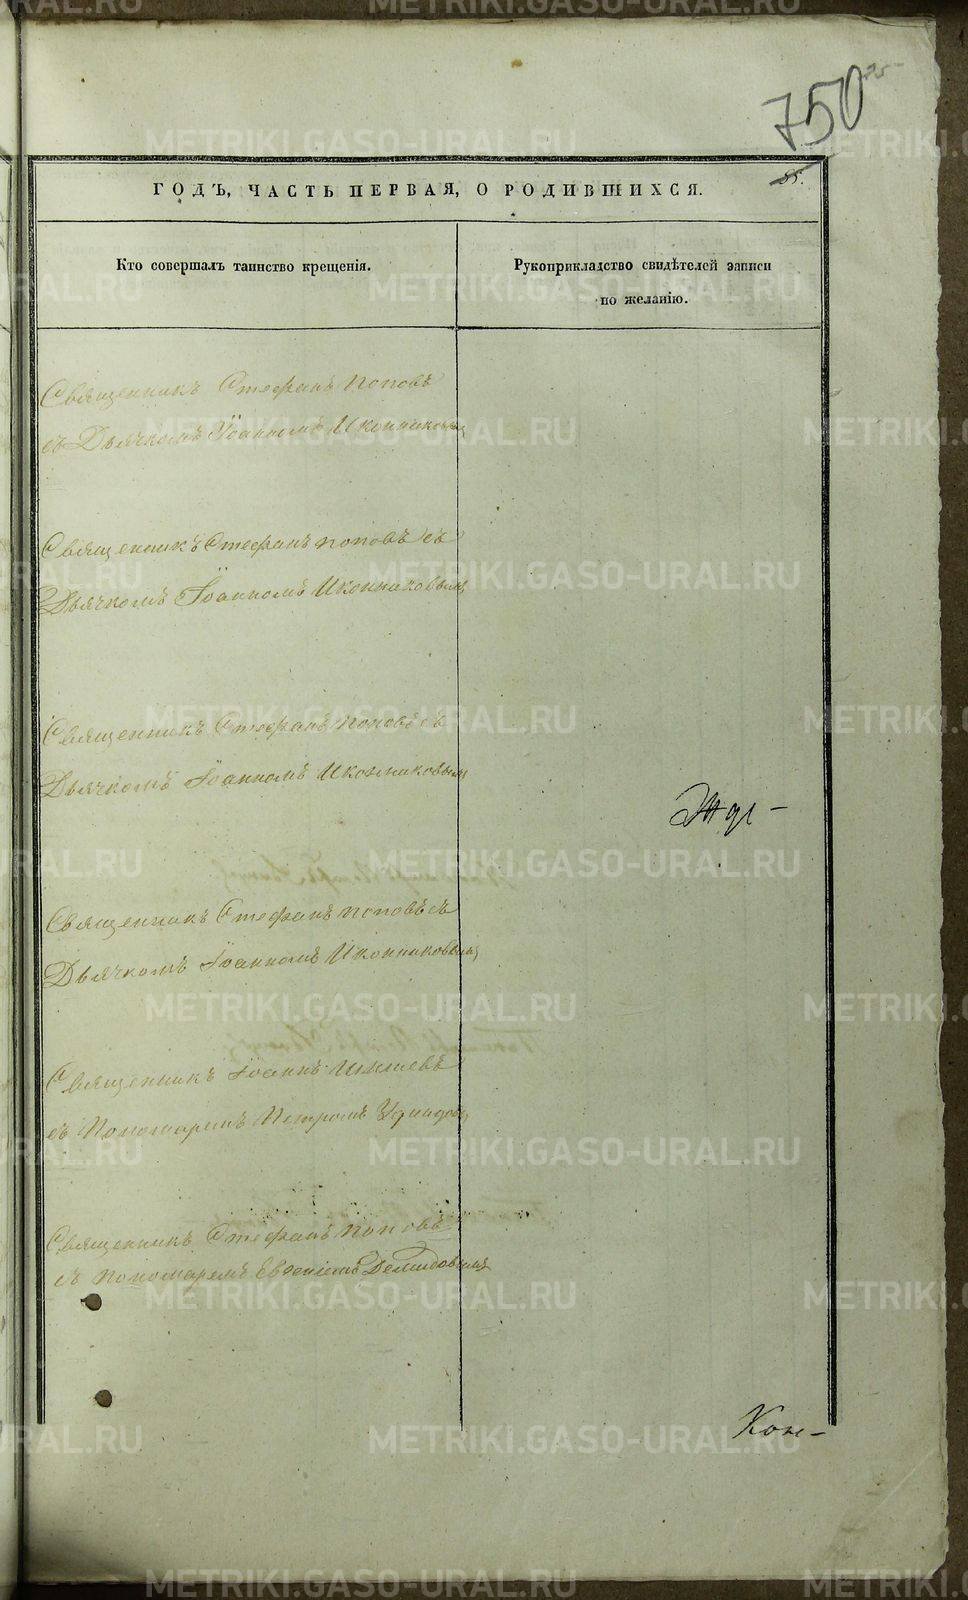 750
55.
ГОДЪ, ЧАСТЬ ПЕРВАЯ, О РОДИВШИХСЯ.
Кто совершалъ таинство крещенія.
Рукоприкладство свидѣтелей записи
по желанію.
Священникъ Стефанъ Поповъ
съ Дьячкомъ Іоанномъ Иконниковымъ
Священникъ Стефанъ Поповъ съ
Дьячкомъ Іоанномъ Иконниковымъ
Священникъ Стефанъ Поповъ съ
Дьячкомъ Іоанномъ Иконниковымъ
Священникъ Стефанъ Поповъ съ
Дьячкомъ Іоанномъ Иконниковымъ
Священникъ Іоаннъ
съ Пономаремъ Петромъ
Священникъ Стефанъ Поповъ
съ Пономаремъ Евгеніемъ Демидовымъ
METRIKI.GASO-URAL.RU